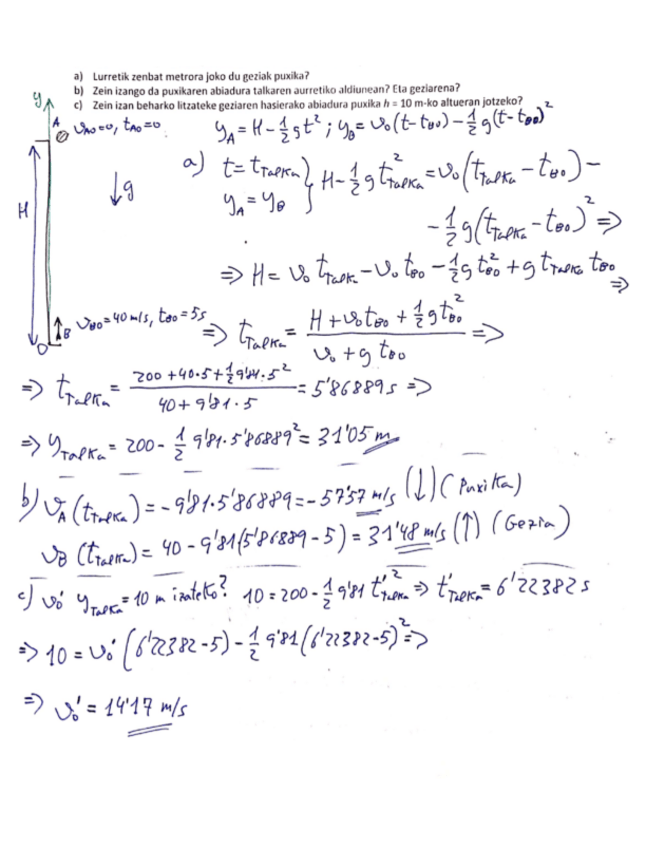 a) Lurretik zenbat metrora joko du geziak puxika?
b) Zein izango da puxikaren abiadura talkaren aurretiko aldiunean? Eta geziarena?
c) Zein izan beharko litzateke geziaren hasierako abiadura puxika h = 10 m-ko altueran jotzeko?
y
A v_A0=0, t_A0=0
y_A = H - 1/2 g t² ; y_B = v_0(t - t_B0) - 1/2 g(t - t_B0)²
H
↓g
a) t = t_Talka } H - 1/2 g t²_Talka = v_0(t_Talka - t_B0) -
y_A = y_B
- 1/2 g(t_Talka - t_B0)² ⇒
⇒ H = v_0 t_Talk. - v_0 t_B0 - 1/2 g t²_B0 + g t_Talka t_B0 ⇒
O B v_B0 = 40 m/s, t_B0 = 5s
⇒ t_Talka = (H + v_0 t_B0 + 1/2 g t²_B0) / (v_0 + g t_B0) ⇒
⇒ t_Talka = (200 + 40·5 + 1/2 9'81·5²) / (40 + 9'81·5) = 5'86889 s ⇒
⇒ y_Talka = 200 - 1/2 9'81·5'86889² = 31'05 m
b) v_A (t_Talka) = - 9'81·5'86889 = - 57'57 m/s (↓) (Puxika)
v_B (t_Talka) = 40 - 9'81(5'86889 - 5) = 31'48 m/s (↑) (Gezia)
c) v_0' y_Talka = 10 m izateko? 10 = 200 - 1/2 9'81 t'²_Talka ⇒ t'_Talka = 6'22382 s
⇒ 10 = v_0' (6'22382 - 5) - 1/2 9'81 (6'22382 - 5)² ⇒
⇒ v_0' = 14'17 m/s